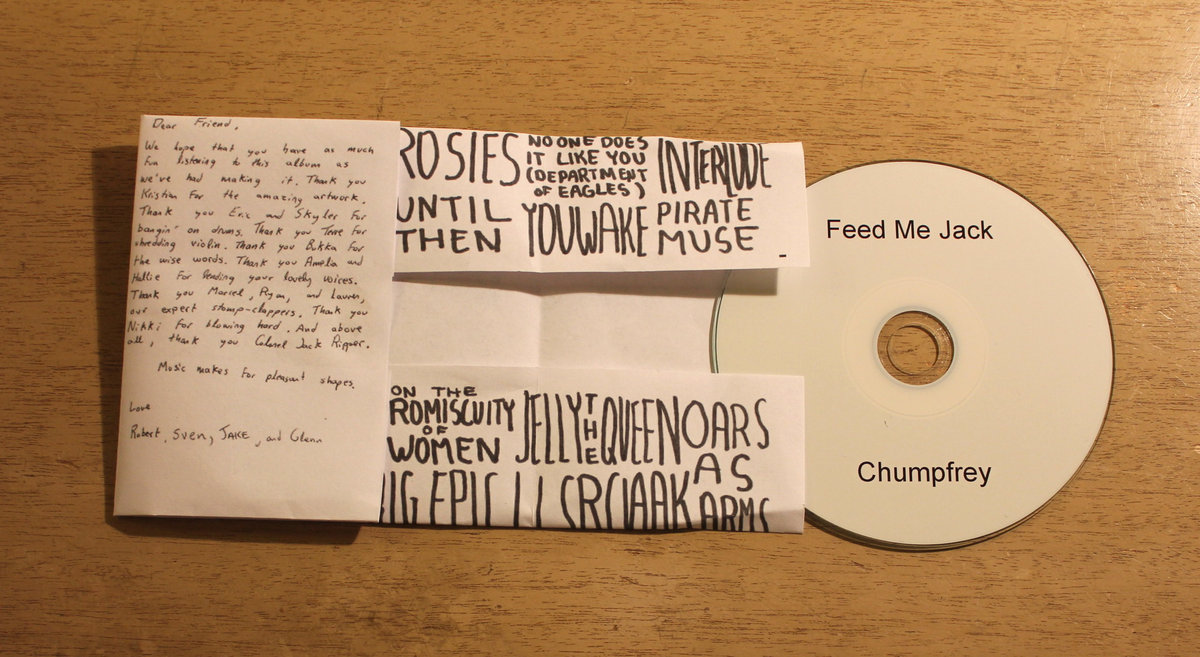 Dear Friend,
We hope that you have as much
fun listening to this album as
we've had making it. Thank you
Kristian for the amazing artwork.
Thank you Eric and Skyler for
bangin' on drums. Thank you Tene for
shredding violin. Thank you Bukka for
the wise words. Thank you Amelia and
Hallie for lending your lovely voices.
Thank you Marcel, Ryan, and Lauren,
our expert stomp-clappers. Thank you
Nikki for blowing hard. And above
all, thank you Colonel Jack Ripper.
Music makes for pleasant shapes.
Love
Robert, Sven, JAKE, and Glenn
ROSIES
NO ONE DOES
IT LIKE YOU
(DEPARTMENT
OF EAGLES)
INTERLUDE
UNTIL
THEN
YOU WAKE
PIRATE
MUSE
ON THE
ROMISCUITY
OF
WOMEN
JELLY
THE
QUEEN
OARS
AS
ARMS
IG EPIC
Feed Me Jack
Chumpfrey